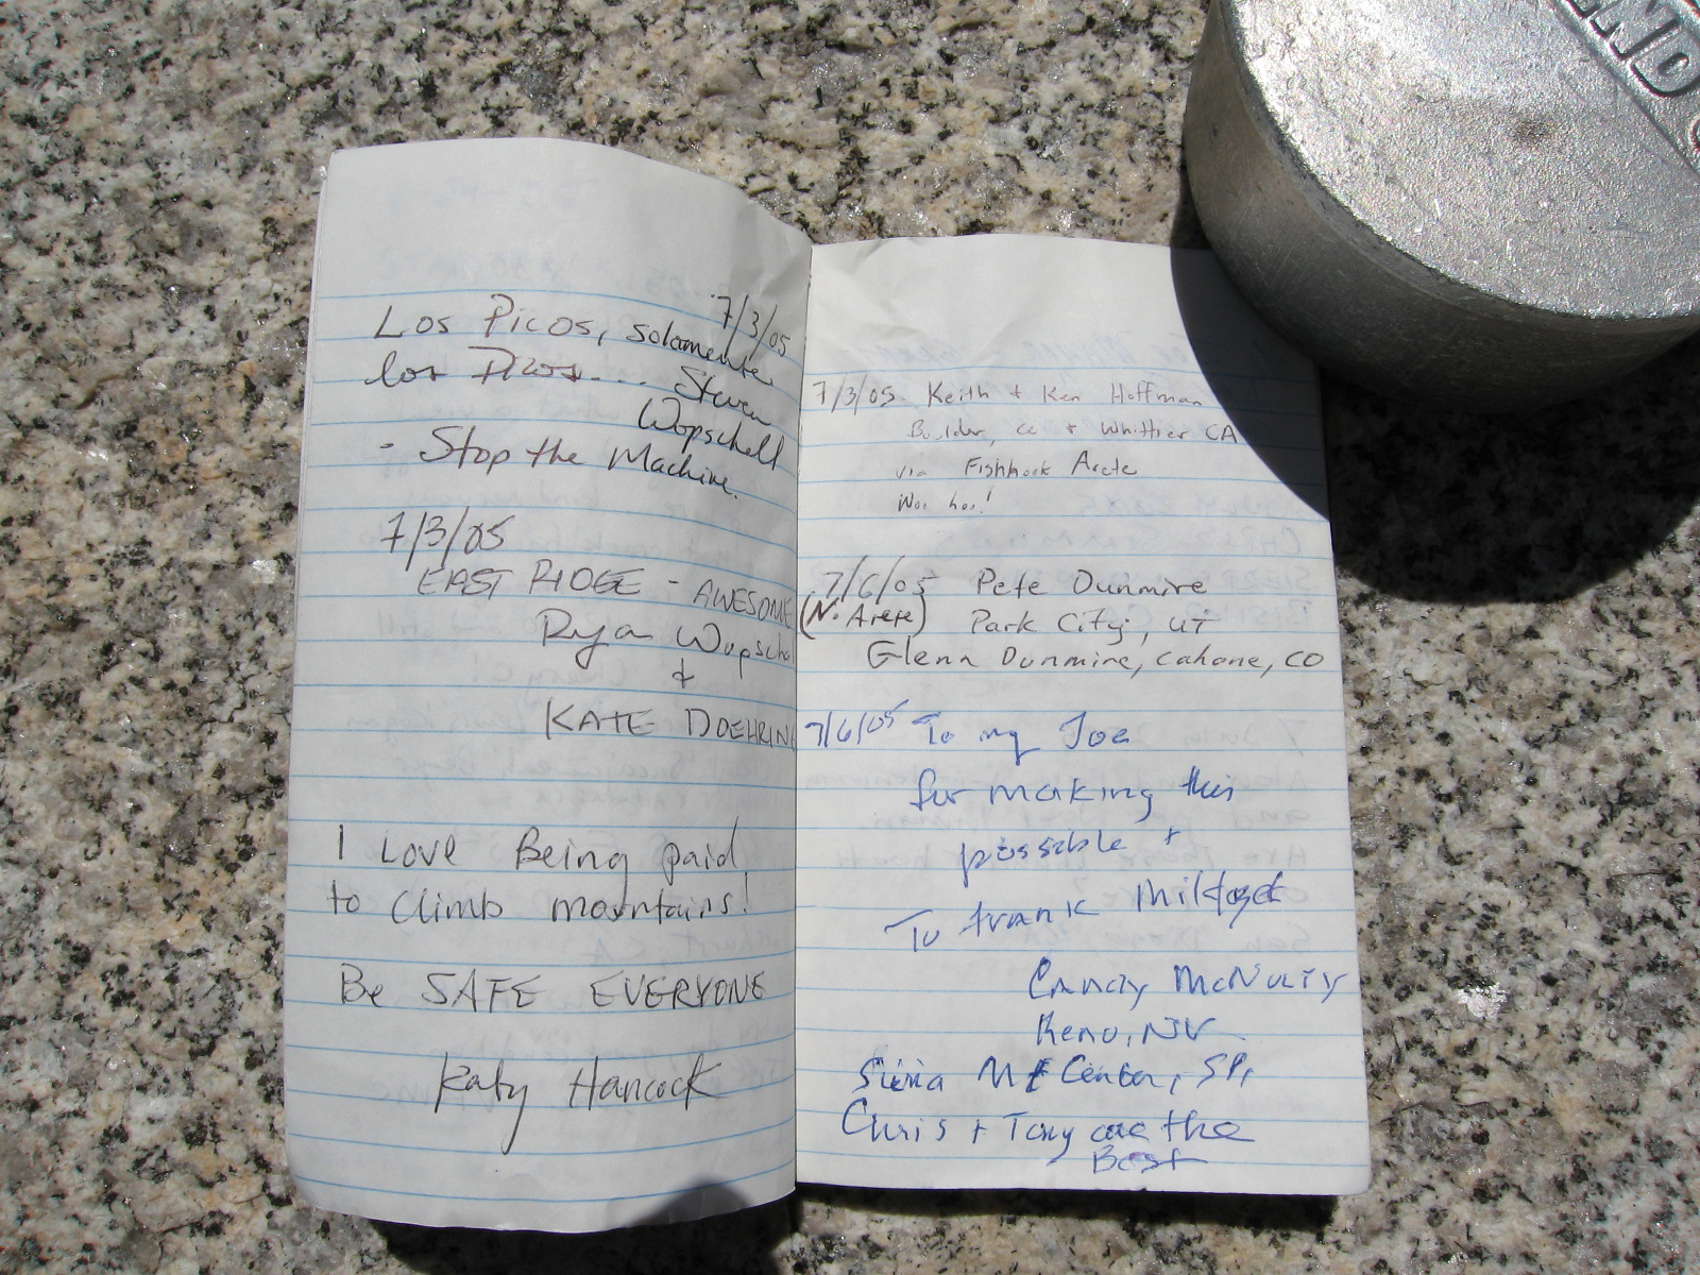 7/3/05
Los Picos, solamente
los Picos... Steven
Wopschall
- Stop the Machine.
7/3/05
EAST RIDGE - AWESOME
Ryan Wopscha
&
KATE DOEHRING
I LOVE Being paid
to climb mountains!
Be SAFE EVERYONE
Katy Hancock
7/3/05. Keith + Ken Hoffman
Boulder, co + Whittier CA
via Fishhook Arete
Woo hoo!
7/6/05 Pete Dunmire
(N. Arete) Park City, UT
Glenn Dunmire, Cahone, CO
7/6/05 To my Joe
for making this
possible +
To Frank
McNulty
Reno, NV
Sierra Mt Center, SP,
Chris + Tony are the
Best
ND